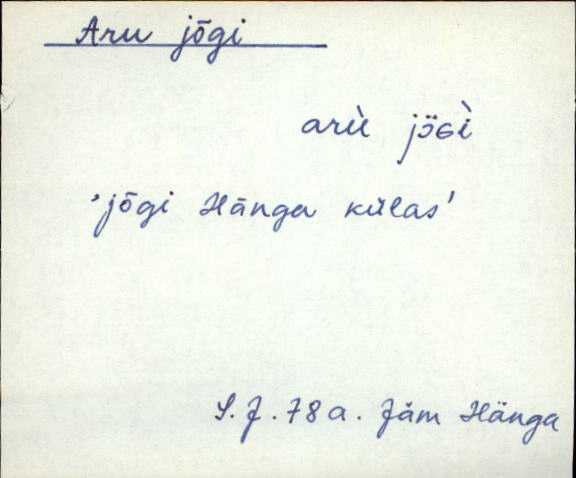 Aru jõgi
arù jɔ̈ɢì
'jõgi Hänga külas'
S. J. 78 a. Jäm Hänga